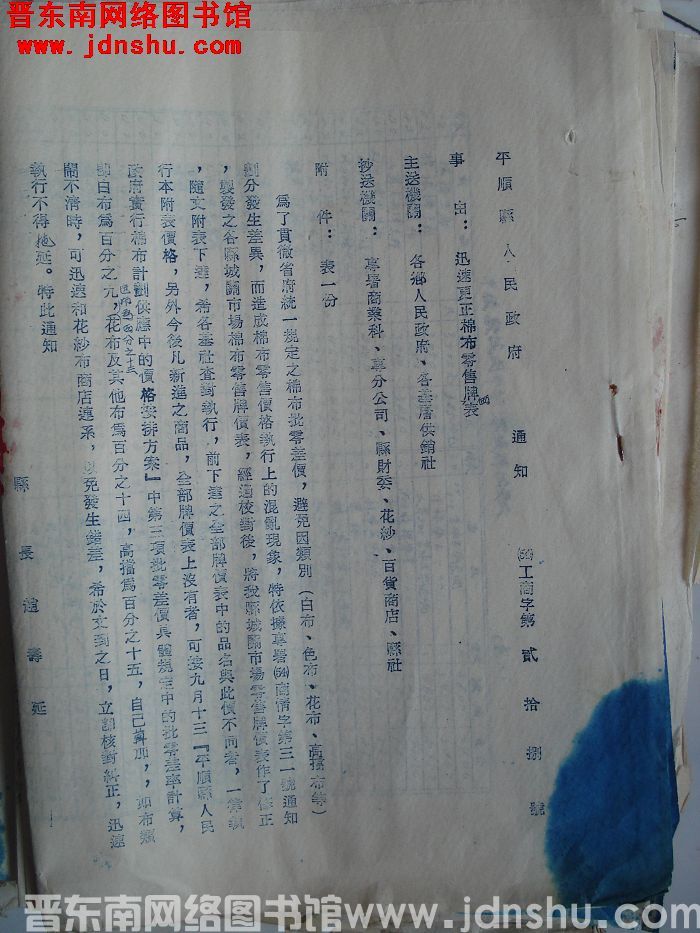 晋东南网络图书馆
www.jdnshu.com
平順縣人民政府 通知 (54)工商字第貳拾捌號
事由：迅速更正棉布零售牌價表
主送機關：各鄉人民政府、各基層供銷社
抄送機關：專署商業科、專分公司、縣財委、花紗、百貨商店、縣社
附件：表一份
為了貫徹省府統一規定之棉布批零差價，避免因類別（白布、色布、花布、高檔布等）
劃分發生差異，而造成棉布零售價格執行上的混亂現象，特依據專署(54)商情字第三一號通知
，製發之各縣城關市場棉布零售牌價表，經過校對後，將我縣城關市場零售牌價表作了修正
，隨文附表下達，希各基社查對執行，前下達之全部牌價表中的品名與此價不同者，一律執
行本附表價格，另外今後凡新進之商品，全部牌價表上沒有者，可按九月十三『平順縣人民
政府實行棉布計劃供應中的價格安排方案』中第三項批零差價具體規定中的批零差率計算，
即白布為百分之九，色布為百分之十三花布及其他布為百分之十四，高檔為百分之十五，自己算加，如布類
鬧不清時，可迅速和花紗布商店連系，以免發生錯差，希於文到之日，立即核對糾正，迅速
執行不得拖延。特此通知
縣長 趙壽延
晋东南网络图书馆 www.jdnshu.com